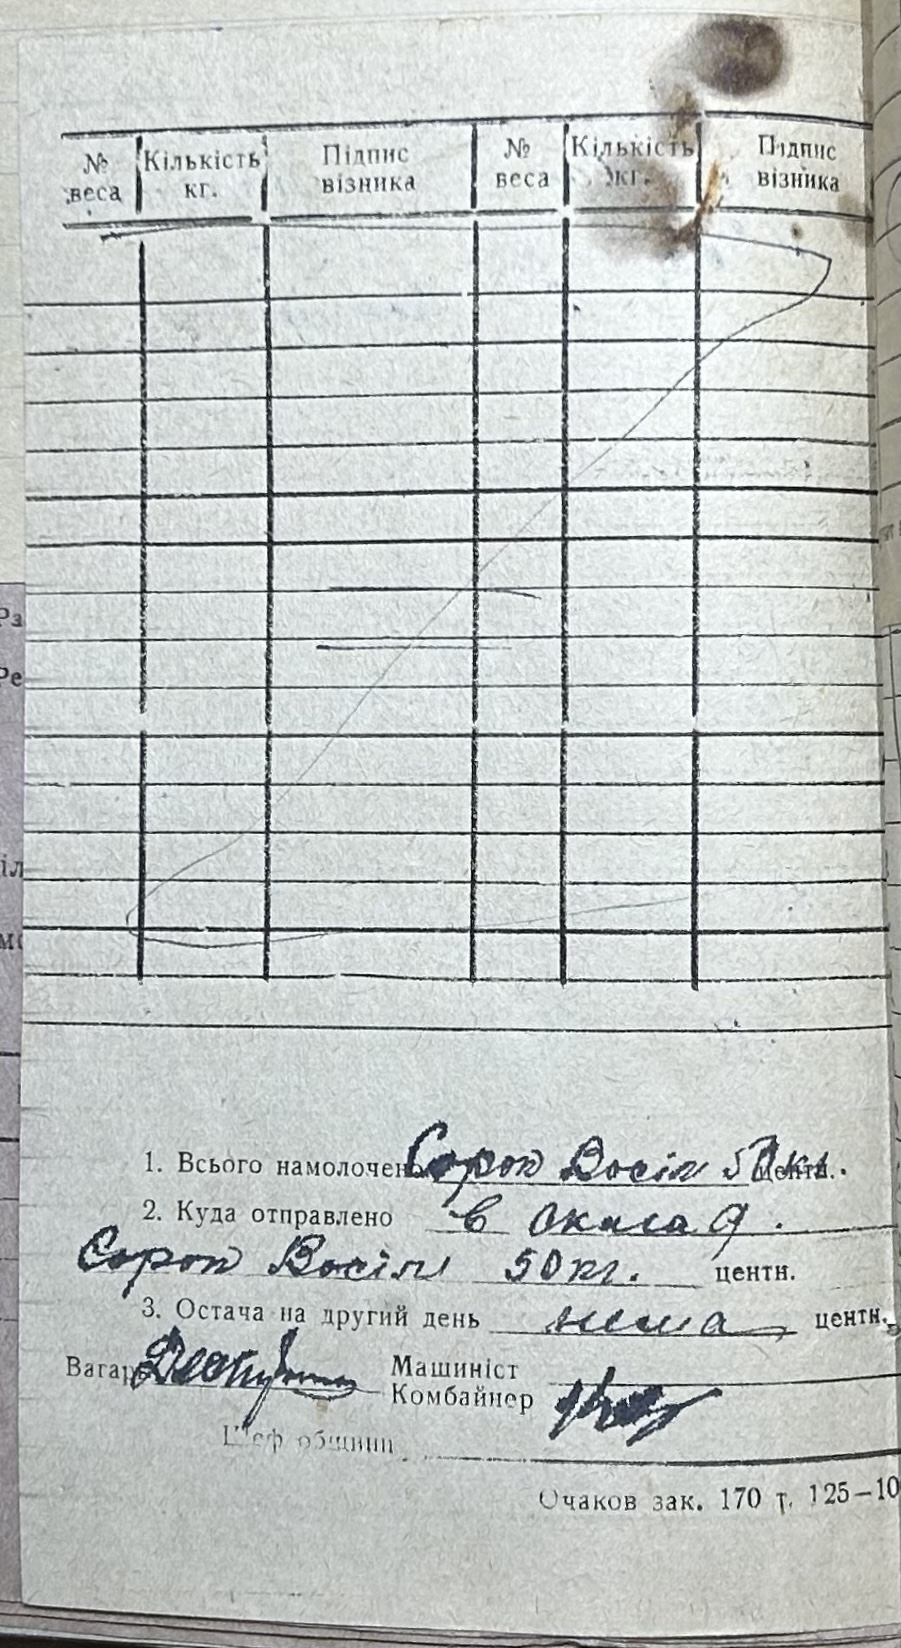 № веса Кількість кг. Підпис візника № веса Кількість кг. Підпис візника
1. Всього намолочено Сорок Восім 50 кг. центн.
2. Куда отправлено в склад.
Сорок Восім 50 кг. центн.
3. Остача на другий день нема центн.
Вагар Машиніст
Комбайнер
Шеф общини
Очаков зак. 170 т. 125—10